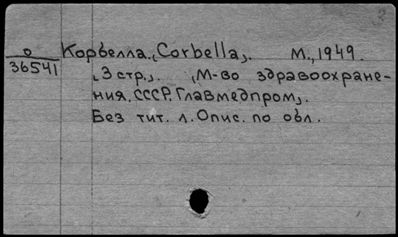 о
36541
Корбелла. (Corbella). М., 1949.
(3 стр.). (М-во здравоохране-
ния. СССР. Главмедпром).
Без тит. л. Опис. по обл.